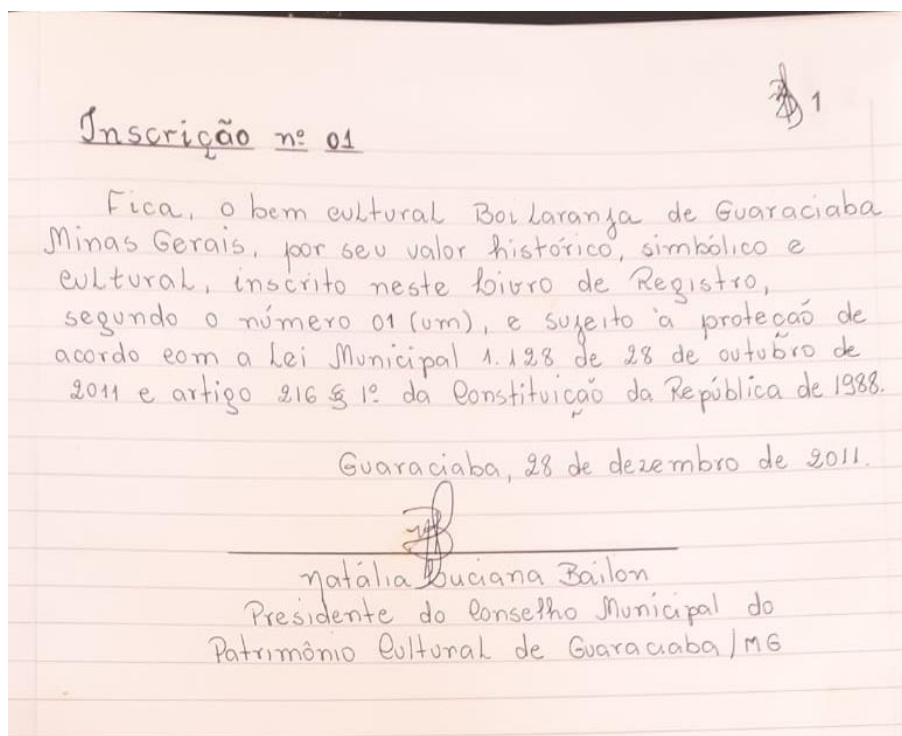 1
Inscrição nº 01
Fica, o bem cultural Boi Laranja de Guaraciaba
Minas Gerais, por seu valor histórico, simbólico e
cultural, inscrito neste Livro de Registro,
segundo o número 01 (um), e sujeito à proteção de
acordo com a Lei Municipal 1.128 de 28 de outubro de
2011 e artigo 216 § 1º da Constituição da República de 1988.
Guaraciaba, 28 de dezembro de 2011.
Natália Luciana Bailon
Presidente do Conselho Municipal do
Patrimônio Cultural de Guaraciaba/MG